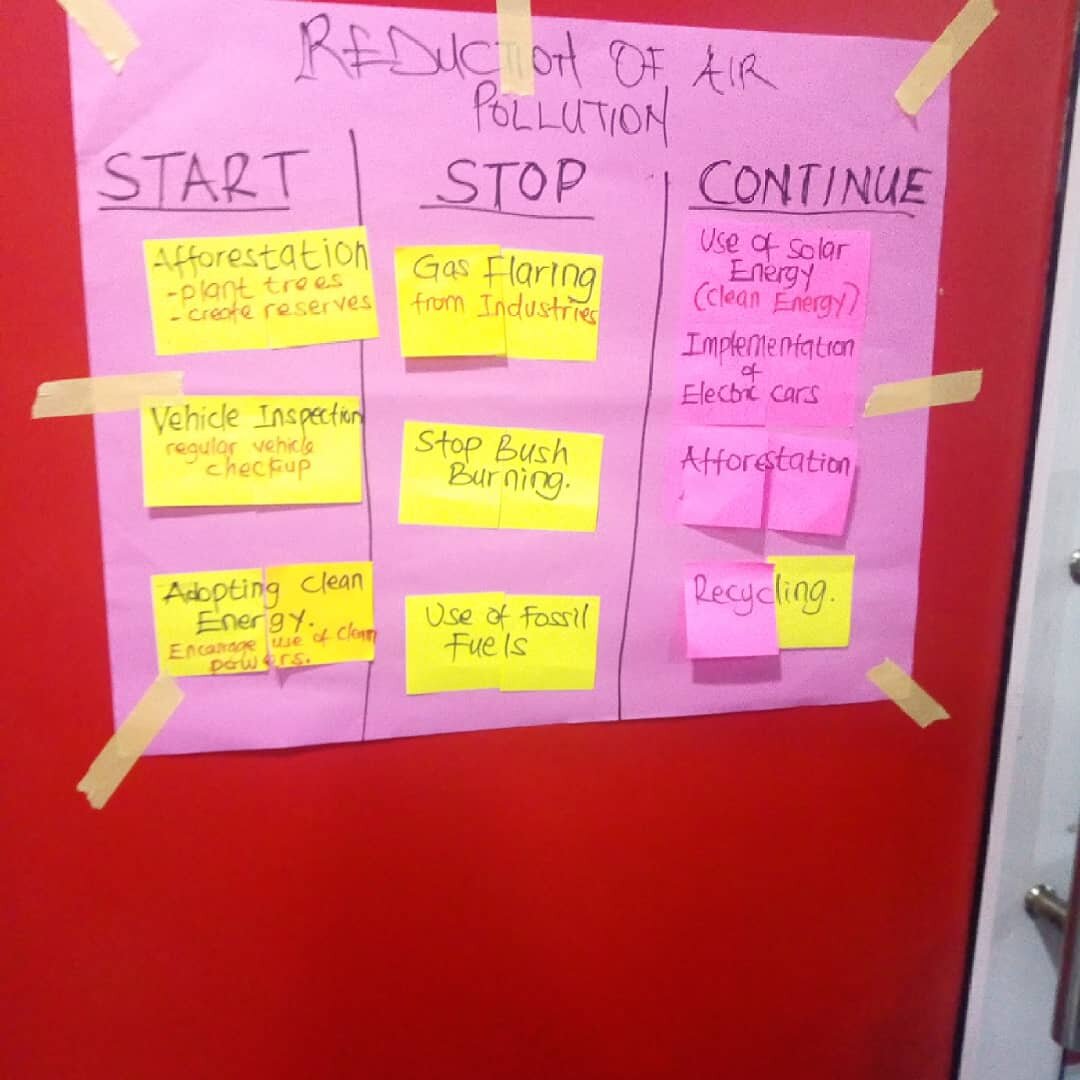 REDUCTION OF AIR
POLLUTION
START
Afforestation
-plant trees
-create reserves
Vehicle Inspection
regular vehicle
checkup
Adopting clean
Energy.
Encourage use of clean
powers.
STOP
Gas Flaring
from Industries
Stop Bush
Burning.
Use of Fossil
Fuels
CONTINUE
Use of Solar
Energy
(Clean Energy)
Implementation
of
Electric cars
Afforestation
Recycling.